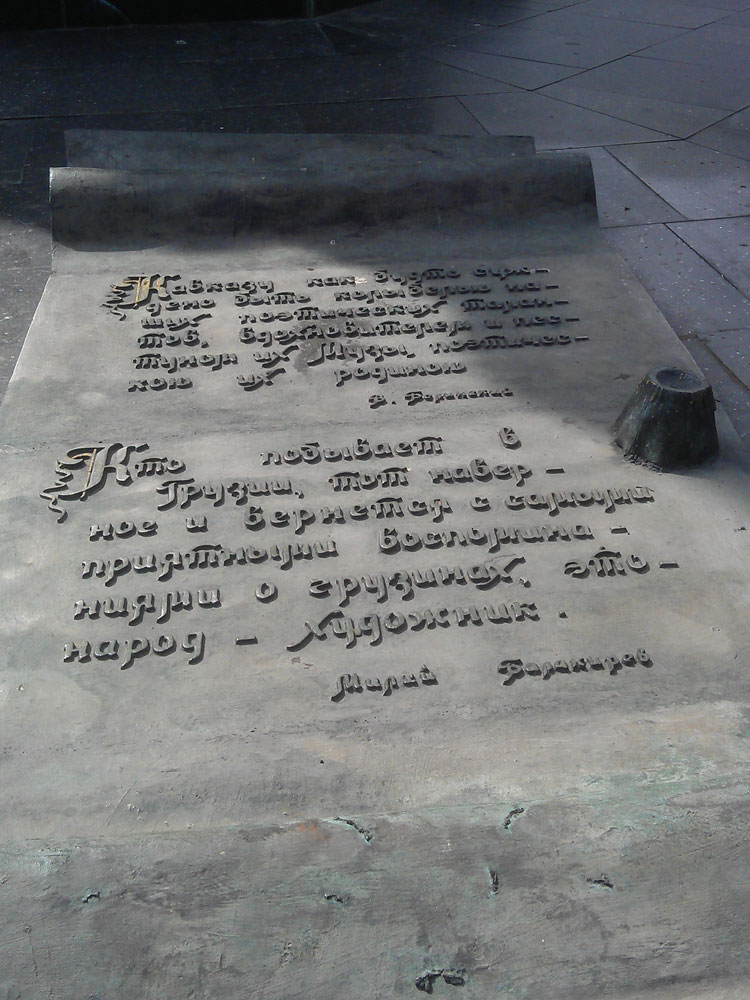 Кавказу как будто суж-
дено быть колыбелью на-
ших поэтических талан-
тов, вдохновителем и пес-
туном их Музы, поэтичес-
кою их родиною
В. Белинский
Кто побывает в
Грузии, тот навер-
ное и вернется с самыми
приятными воспомина-
ниями о грузинах, это-
народ - художник.
Милий Балакирев